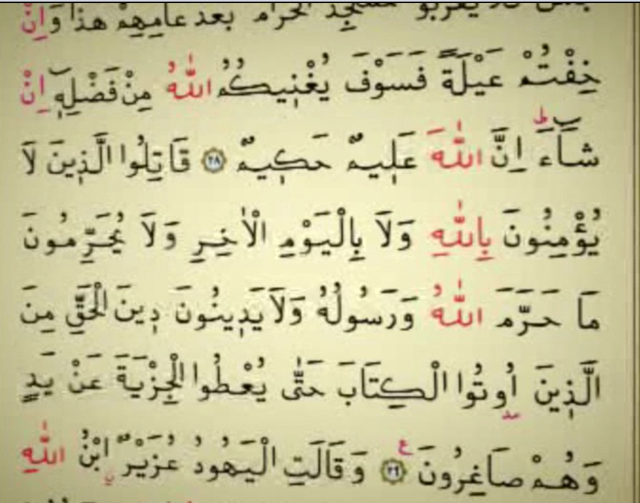 فلا يقربوا المسجد الحرام بعد عامهم هذا وَاِنْ
خِفْتُمْ عَيْلَةً فَسَوْفَ يُغْنٖيكُمُ اللّٰهُ مِنْ فَضْلِهٖٓ اِنْ
شَٓاءَۜ اِنَّ اللّٰهَ عَلٖيمٌ حَكٖيمٌ ﴿٢٨﴾ قَاتِلُوا الَّذٖينَ لَا
يُؤْمِنُونَ بِاللّٰهِ وَلَا بِالْيَوْمِ الْاٰخِرِ وَلَا يُحَرِّمُونَ
مَا حَرَّمَ اللّٰهُ وَرَسُولُهُ وَلَا يَدٖينُونَ دٖينَ الْحَقِّ مِنَ
الَّذٖينَ اُو۫تُوا الْكِتَابَ حَتّٰى يُعْطُوا الْجِزْيَةَ عَنْ يَدٍ
وَهُمْ صَاغِرُونَ ﴿٢٩﴾ ع وَقَالَتِ الْيَهُودُ عُزَيْرٌۨ ابْنُ اللّٰهِ